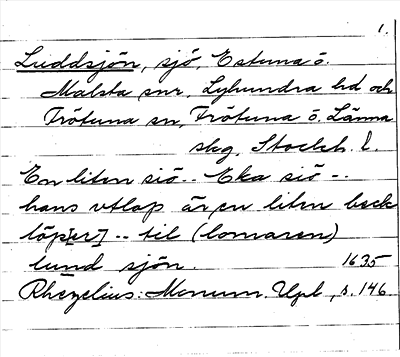 1.
Luddsjön, sjö, Estuna o.
Malsta snr, Lyhundra hd och
Frötuna sn, Frötuna o. Länna
skg, Stockh. l.
En liten siö.. Eka siö -.
hans vtlop är en liten beck
löp[er] -- til (lomaren)
lund sjön. 1635
Rhezelius: Monum. Upl., s. 146